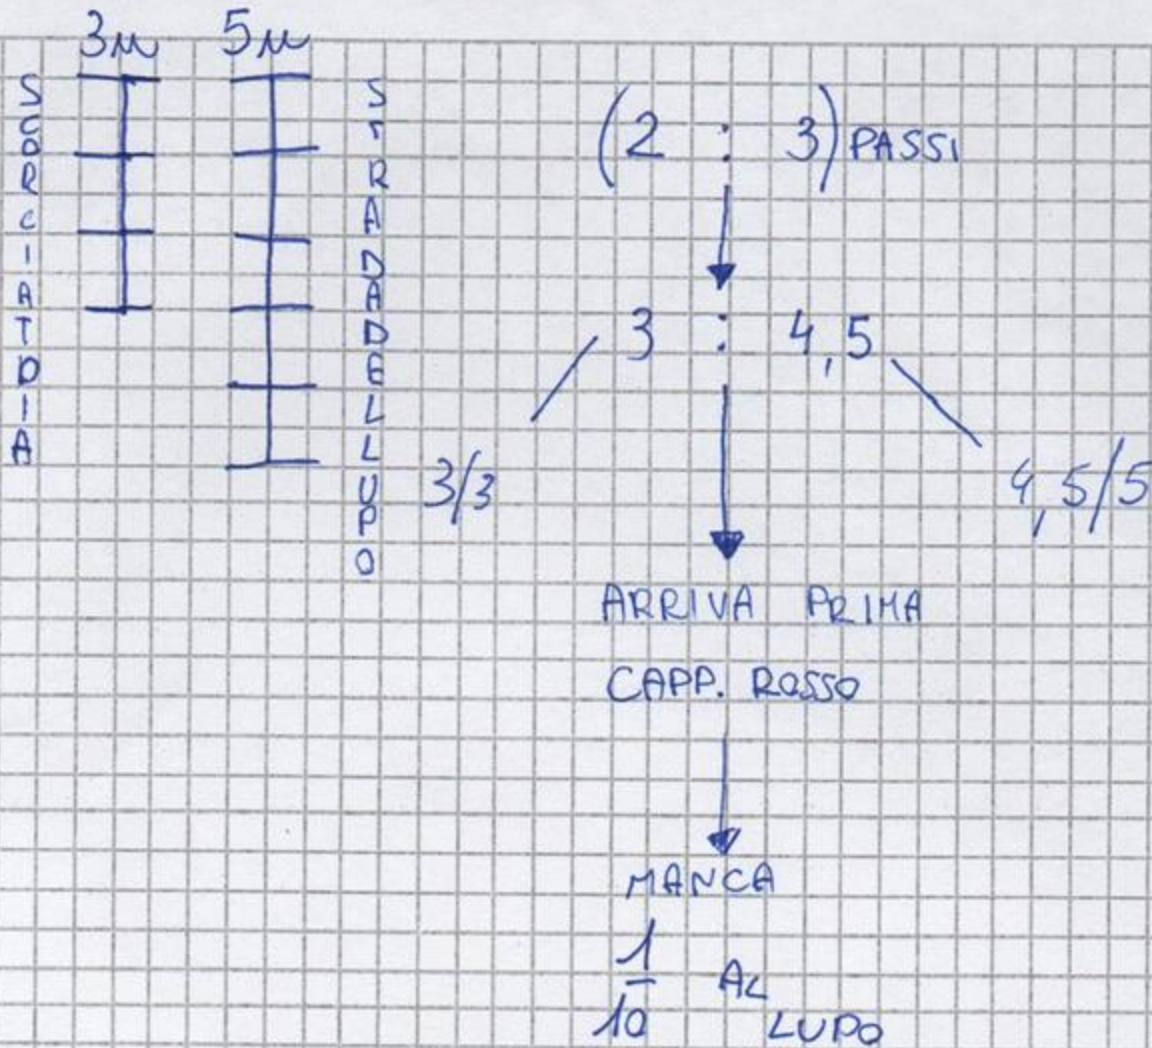 3u 5u
SCORCIATOIA
STRADA DEL LUPO
(2 : 3) PASSI
3 : 4,5
3/3
4,5/5
ARRIVA PRIMA
CAPP. ROSSO
MANCA
1/10 AL
LUPO